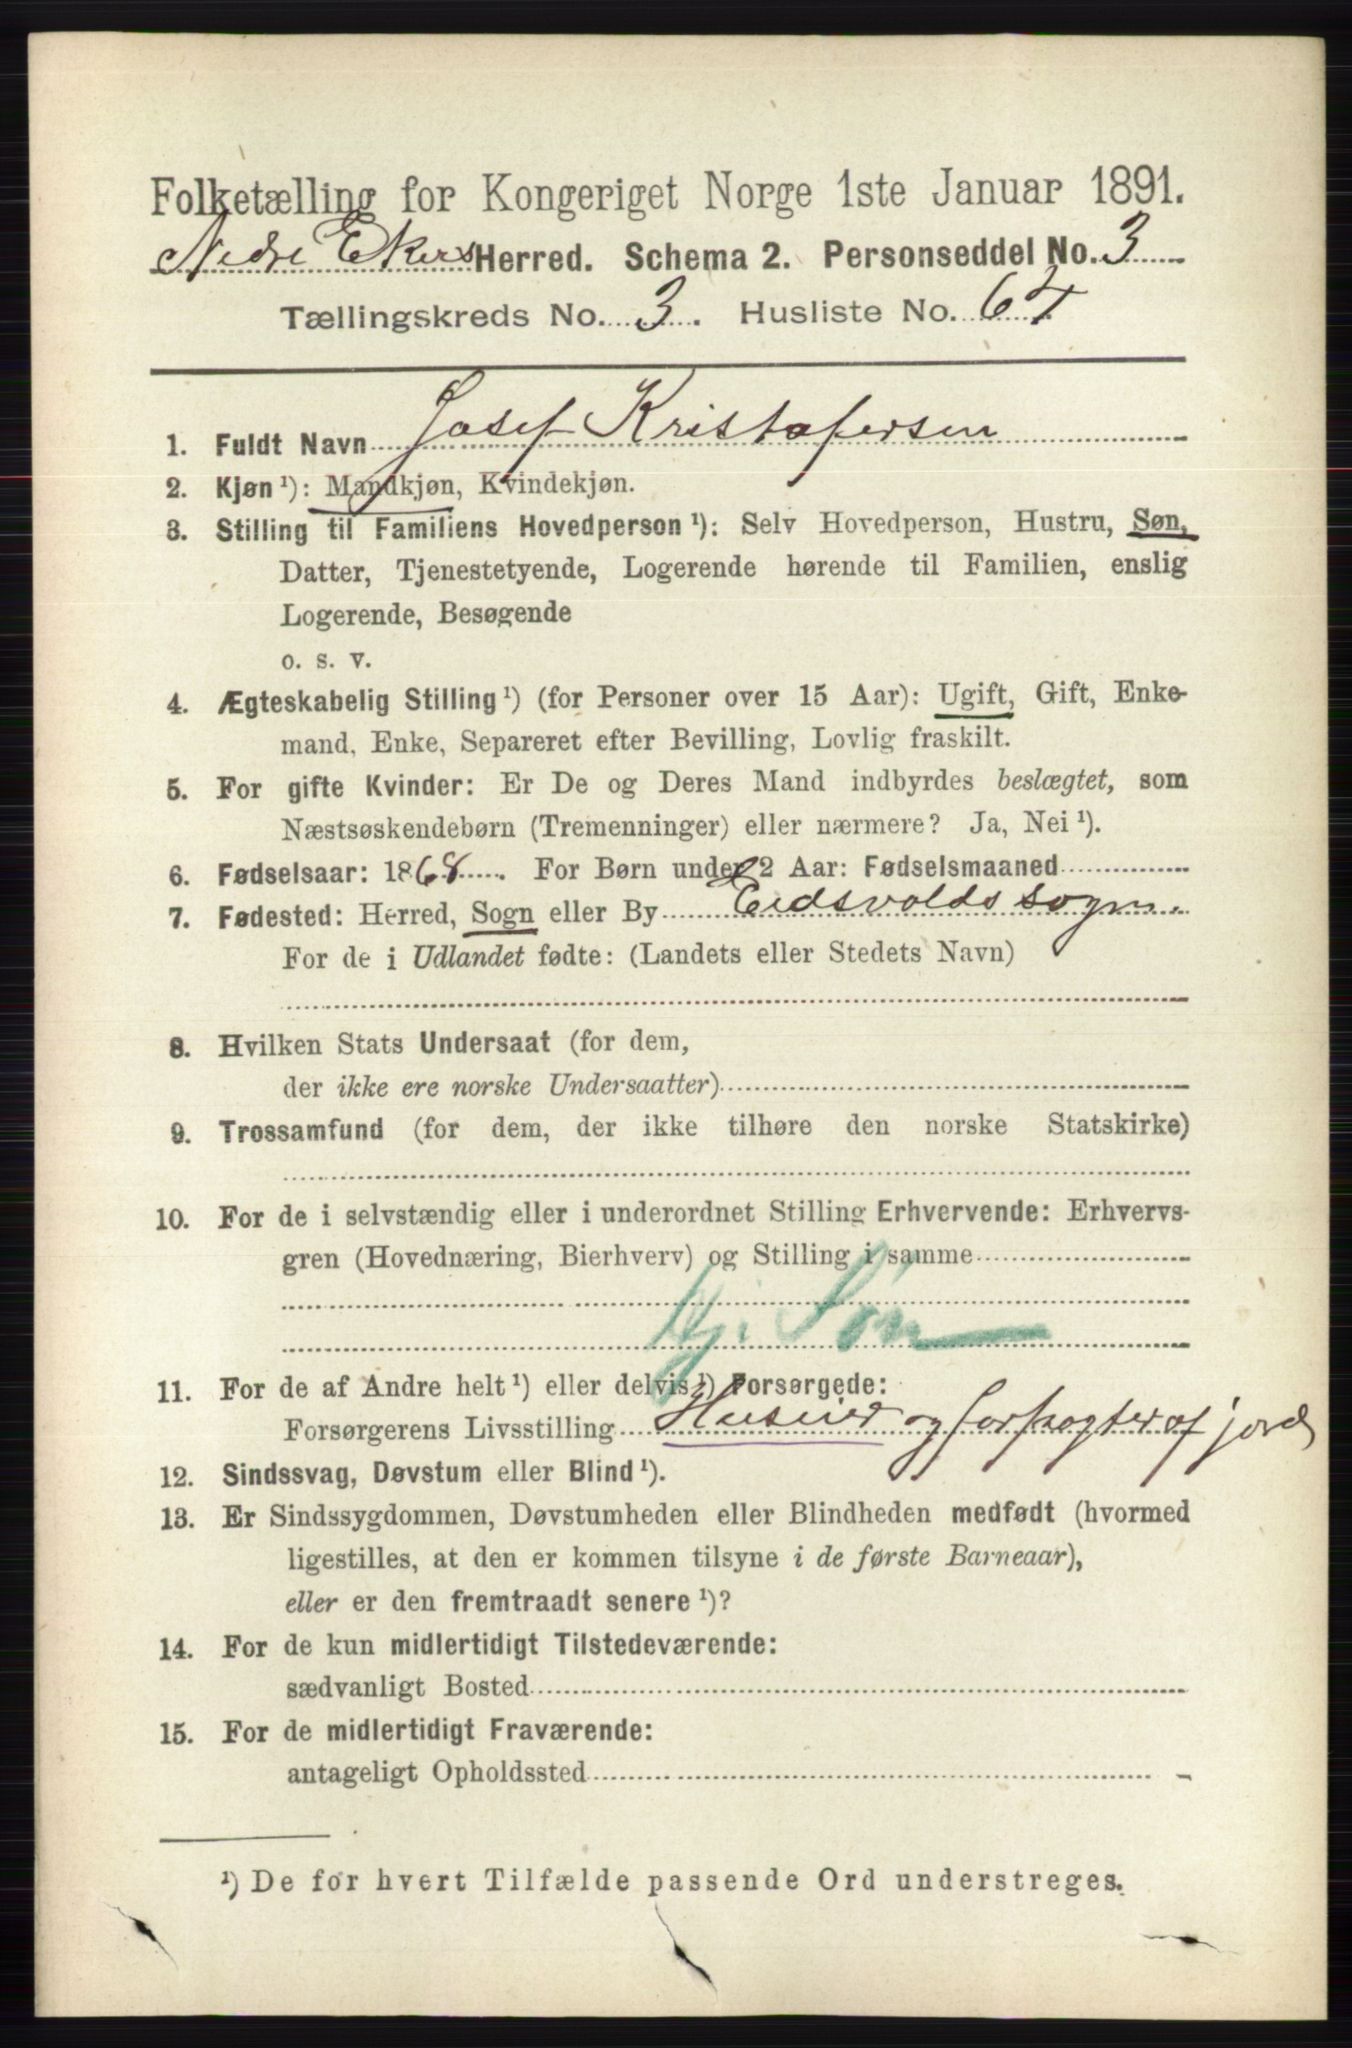 Folketælling for Kongeriget Norge 1ste Januar 1891.
Nedre Ekers Herred. Schema 2. Personseddel No. 3
Tællingskreds No. 3. Husliste No. 64
1. Fuldt Navn Josef Kristofersen
2. Kjøn ¹): Mandkjøn, Kvindekjøn.
3. Stilling til Familiens Hovedperson ¹): Selv Hovedperson, Hustru, Søn,
Datter, Tjenestetyende, Logerende hørende til Familien, enslig
Logerende, Besøgende
o. s. v.
4. Ægteskabelig Stilling ¹) (for Personer over 15 Aar): Ugift, Gift, Enke-
mand, Enke, Separeret efter Bevilling, Lovlig fraskilt.
5. For gifte Kvinder: Er De og Deres Mand indbyrdes beslægtet, som
Næstsøskendebørn (Tremenninger) eller nærmere? Ja, Nei ¹).
6. Fødselsaar: 1868. For Børn under 2 Aar: Fødselsmaaned
7. Fødested: Herred, Sogn eller By Eidsvolds sogn.
For de i Udlandet fødte: (Landets eller Stedets Navn)
8. Hvilken Stats Undersaat (for dem,
der ikke ere norske Undersaatter)
9. Trossamfund (for dem, der ikke tilhøre den norske Statskirke)
10. For de i selvstændig eller i underordnet Stilling Erhvervende: Erhvervs-
gren (Hovednæring, Bierhverv) og Stilling i samme
Hj. Søn
11. For de af Andre helt ¹) eller delvis ¹) Forsørgede:
Forsørgerens Livsstilling Huseier og forpagter af jord
12. Sindssvag, Døvstum eller Blind ¹).
13. Er Sindssygdommen, Døvstumheden eller Blindheden medfødt (hvormed
ligestilles, at den er kommen tilsyne i de første Barneaar),
eller er den fremtraadt senere ¹)?
14. For de kun midlertidigt Tilstedeværende:
sædvanligt Bosted
15. For de midlertidigt Fraværende:
antageligt Opholdssted
¹) De for hvert Tilfælde passende Ord understreges.